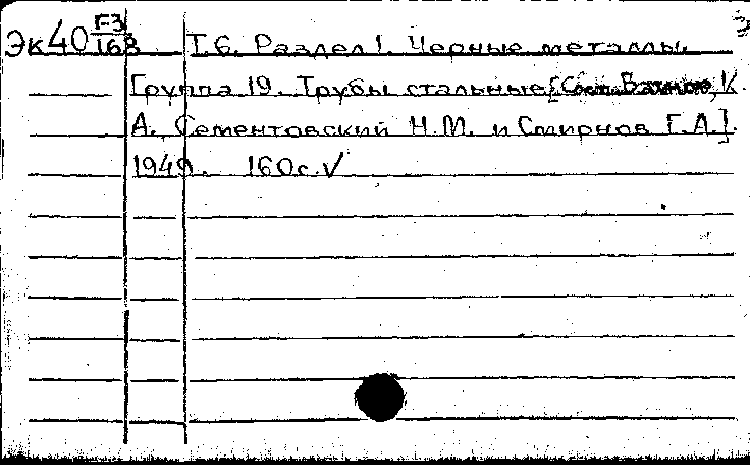 Эк40 Г3/168 Т.6. Раздел I. Черные металлы.
Группа 19. Трубы стальные [Сост.
А. Сементовский Н.М. и Смирнов Г.А.].
1949. 160с. √